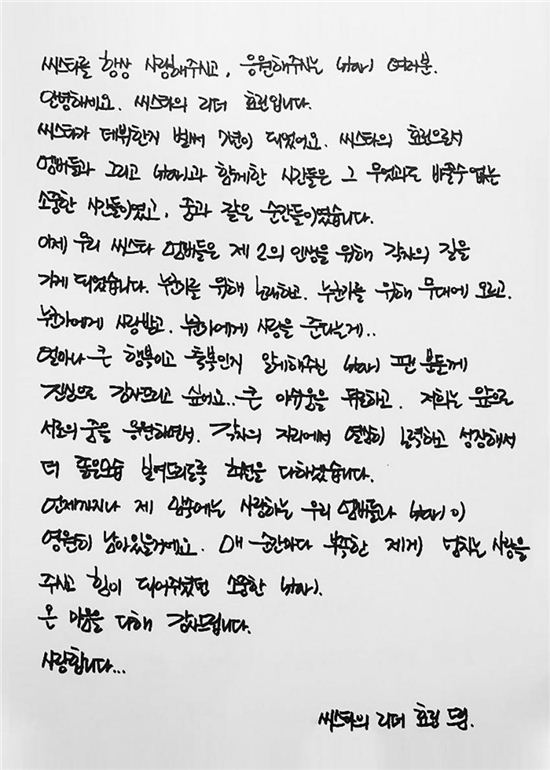 씨스타를 항상 사랑해주시고, 응원해주시는 스타1 여러분.
안녕하세요. 씨스타의 리더 효린입니다.
씨스타가 데뷔한지 벌써 7년이 되었어요. 씨스타의 효린으로서
멤버들과 그리고 스타1과 함께한 시간들은 그 무엇과도 바꿀수 없는
소중한 시간들이였고, 꿈과 같은 순간들이였습니다.
이제 우리 씨스타 멤버들은 제 2의 인생을 위해 각자의 길을
가게 되었습니다. 누군가를 위해 노래하고. 누군가를 위해 무대에 오르고.
누군가에게 사랑받고. 누군가에게 사랑을 준다는게..
얼마나 큰 행복이고 축복인지 알게해주신 스타1 팬 분들께
진심으로 감사드리고 싶어요.. 큰 아쉬움을 뒤로하고. 저희는 앞으로
서로의 꿈을 응원하면서. 각자의 자리에서 열심히 노력하고 성장해서
더 좋은모습 보여드리도록 최선을 다하겠습니다.
언제까지나 제 마음속에는 사랑하는 우리 멤버들과 스타1이
영원히 남아있을거에요. 매 순간마다 부족한 제게 넘치는 사랑을
주시고 힘이 되어주셨던 소중한 스타1.
온 마음을 다해 감사드립니다.
사랑합니다...
씨스타의 리더 효린 드림.